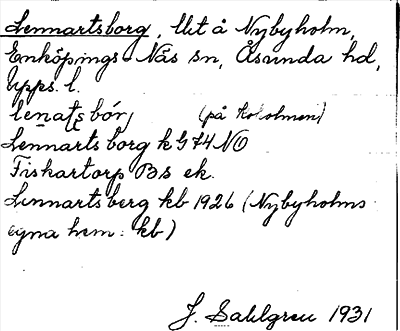 Lennartsborg, lht å Nybyholm,
Enköpings-Näs sn, Åsunda hd,
Upps. l.
lenatsbórj (på Koholmen)
Lennartsborg k G 74 NO
Fiskartorp Bs ek.
Lennartsberg kb 1926 (Nybyholms
egna hem: kb)
J. Sahlgren 1931